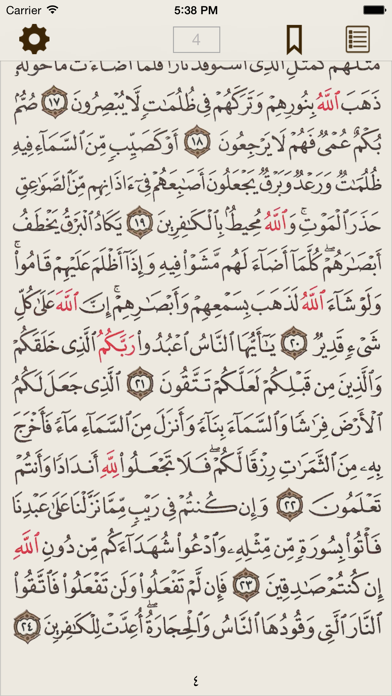 Carrier 5:38 PM
4
مَثَلُهُمْ كَمَثَلِ ٱلَّذِى ٱسْتَوْقَدَ نَارًا فَلَمَّآ أَضَآءَتْ مَا حَوْلَهُۥ
ذَهَبَ ٱللَّهُ بِنُورِهِمْ وَتَرَكَهُمْ فِى ظُلُمَـٰتٍ لَّا يُبْصِرُونَ ١٧ صُمٌّۢ
بُكْمٌ عُمْىٌ فَهُمْ لَا يَرْجِعُونَ ١٨ أَوْ كَصَيِّبٍ مِّنَ ٱلسَّمَآءِ فِيهِ
ظُلُمَـٰتٌ وَرَعْدٌ وَبَرْقٌ يَجْعَلُونَ أَصَـٰبِعَهُمْ فِىٓ ءَاذَانِهِم مِّنَ ٱلصَّوَٰعِقِ
حَذَرَ ٱلْمَوْتِ ۚ وَٱللَّهُ مُحِيطٌۢ بِٱلْكَـٰفِرِينَ ١٩ يَكَادُ ٱلْبَرْقُ يَخْطَفُ
أَبْصَـٰرَهُمْ ۖ كُلَّمَآ أَضَآءَ لَهُم مَّشَوْا۟ فِيهِ وَإِذَآ أَظْلَمَ عَلَيْهِمْ قَامُوا۟ ۚ
وَلَوْ شَآءَ ٱللَّهُ لَذَهَبَ بِسَمْعِهِمْ وَأَبْصَـٰرِهِمْ ۚ إِنَّ ٱللَّهَ عَلَىٰ كُلِّ
شَىْءٍ قَدِيرٌ ٢٠ يَـٰٓأَيُّهَا ٱلنَّاسُ ٱعْبُدُوا۟ رَبَّكُمُ ٱلَّذِى خَلَقَكُمْ
وَٱلَّذِينَ مِن قَبْلِكُمْ لَعَلَّكُمْ تَتَّقُونَ ٢١ ٱلَّذِى جَعَلَ لَكُمُ
ٱلْأَرْضَ فِرَٰشًا وَٱلسَّمَآءَ بِنَآءً وَأَنزَلَ مِنَ ٱلسَّمَآءِ مَآءً فَأَخْرَجَ
بِهِۦ مِنَ ٱلثَّمَرَٰتِ رِزْقًا لَّكُمْ ۖ فَلَا تَجْعَلُوا۟ لِلَّهِ أَندَادًا وَأَنتُمْ
تَعْلَمُونَ ٢٢ وَإِن كُنتُمْ فِى رَيْبٍ مِّمَّا نَزَّلْنَا عَلَىٰ عَبْدِنَا
فَأْتُوا۟ بِسُورَةٍ مِّن مِّثْلِهِۦ وَٱدْعُوا۟ شُهَدَآءَكُم مِّن دُونِ ٱللَّهِ
إِن كُنتُمْ صَـٰدِقِينَ ٢٣ فَإِن لَّمْ تَفْعَلُوا۟ وَلَن تَفْعَلُوا۟ فَٱتَّقُوا۟
ٱلنَّارَ ٱلَّتِى وَقُودُهَا ٱلنَّاسُ وَٱلْحِجَارَةُ ۖ أُعِدَّتْ لِلْكَـٰفِرِينَ ٢٤
٤